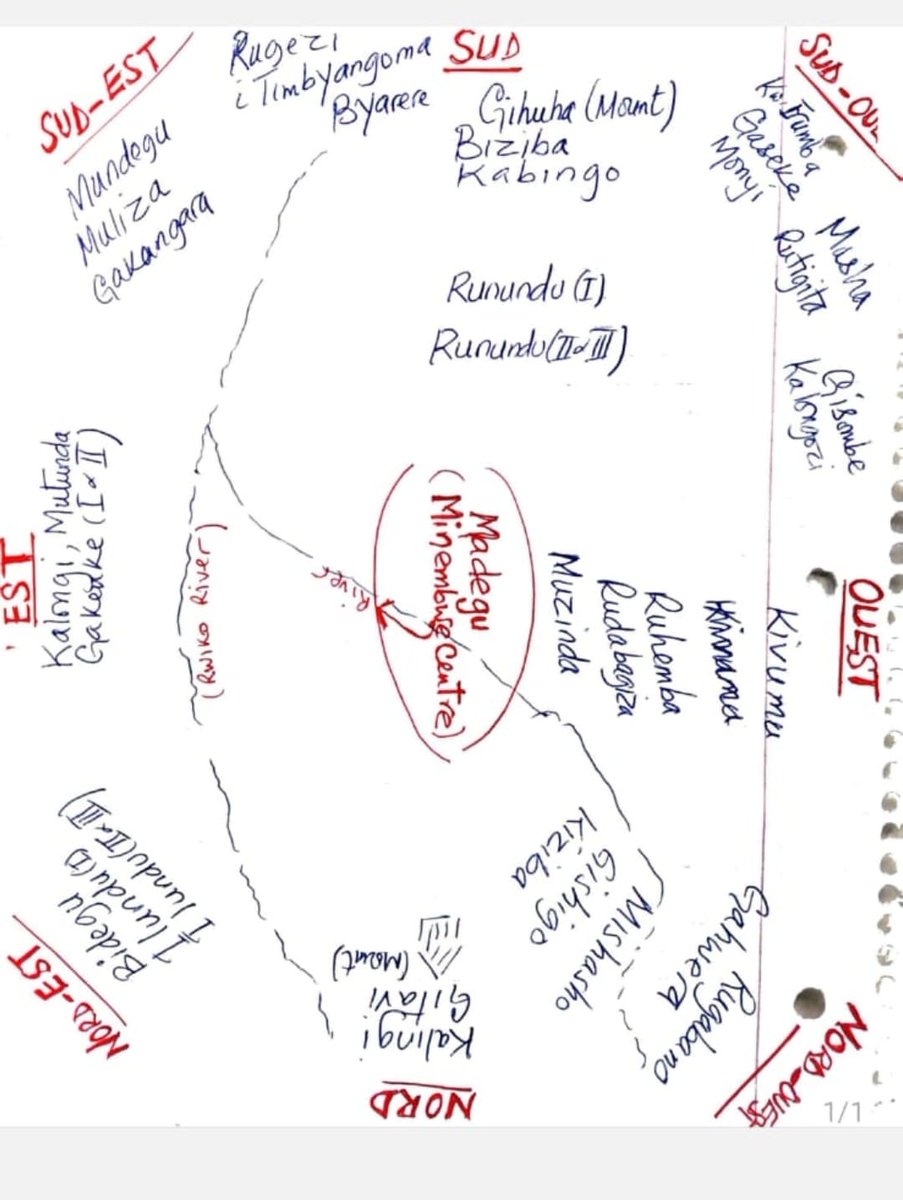 SUD-EST
Mundegu
Muliza
Gakangara
Rugezi
iTimbyangoma
Byarere
SUD
Gihuha (Mount)
Biziba
Kabingo
Runundu (I)
Runundu (II & III)
Gaseke
Monyi
Masha
Rutigita
Gisombe
Kalongozi
EST
Kalongi, Mutunda
Gakenke (I & II)
(RWIKO River)
River
Madegu
(Minembwe Centre)
Muzinda
Rudabagiza
Ruhemba
Kivumu
OUEST
NORD-EST
Bidegu
Ilundu (I)
Ilundu (II & III)
(Mount)
Gitavi
Kalingi
NORD
Kiziba
Gishigo
Mishasho
Gahwera
Rugabano
NORD-OUEST
1/1